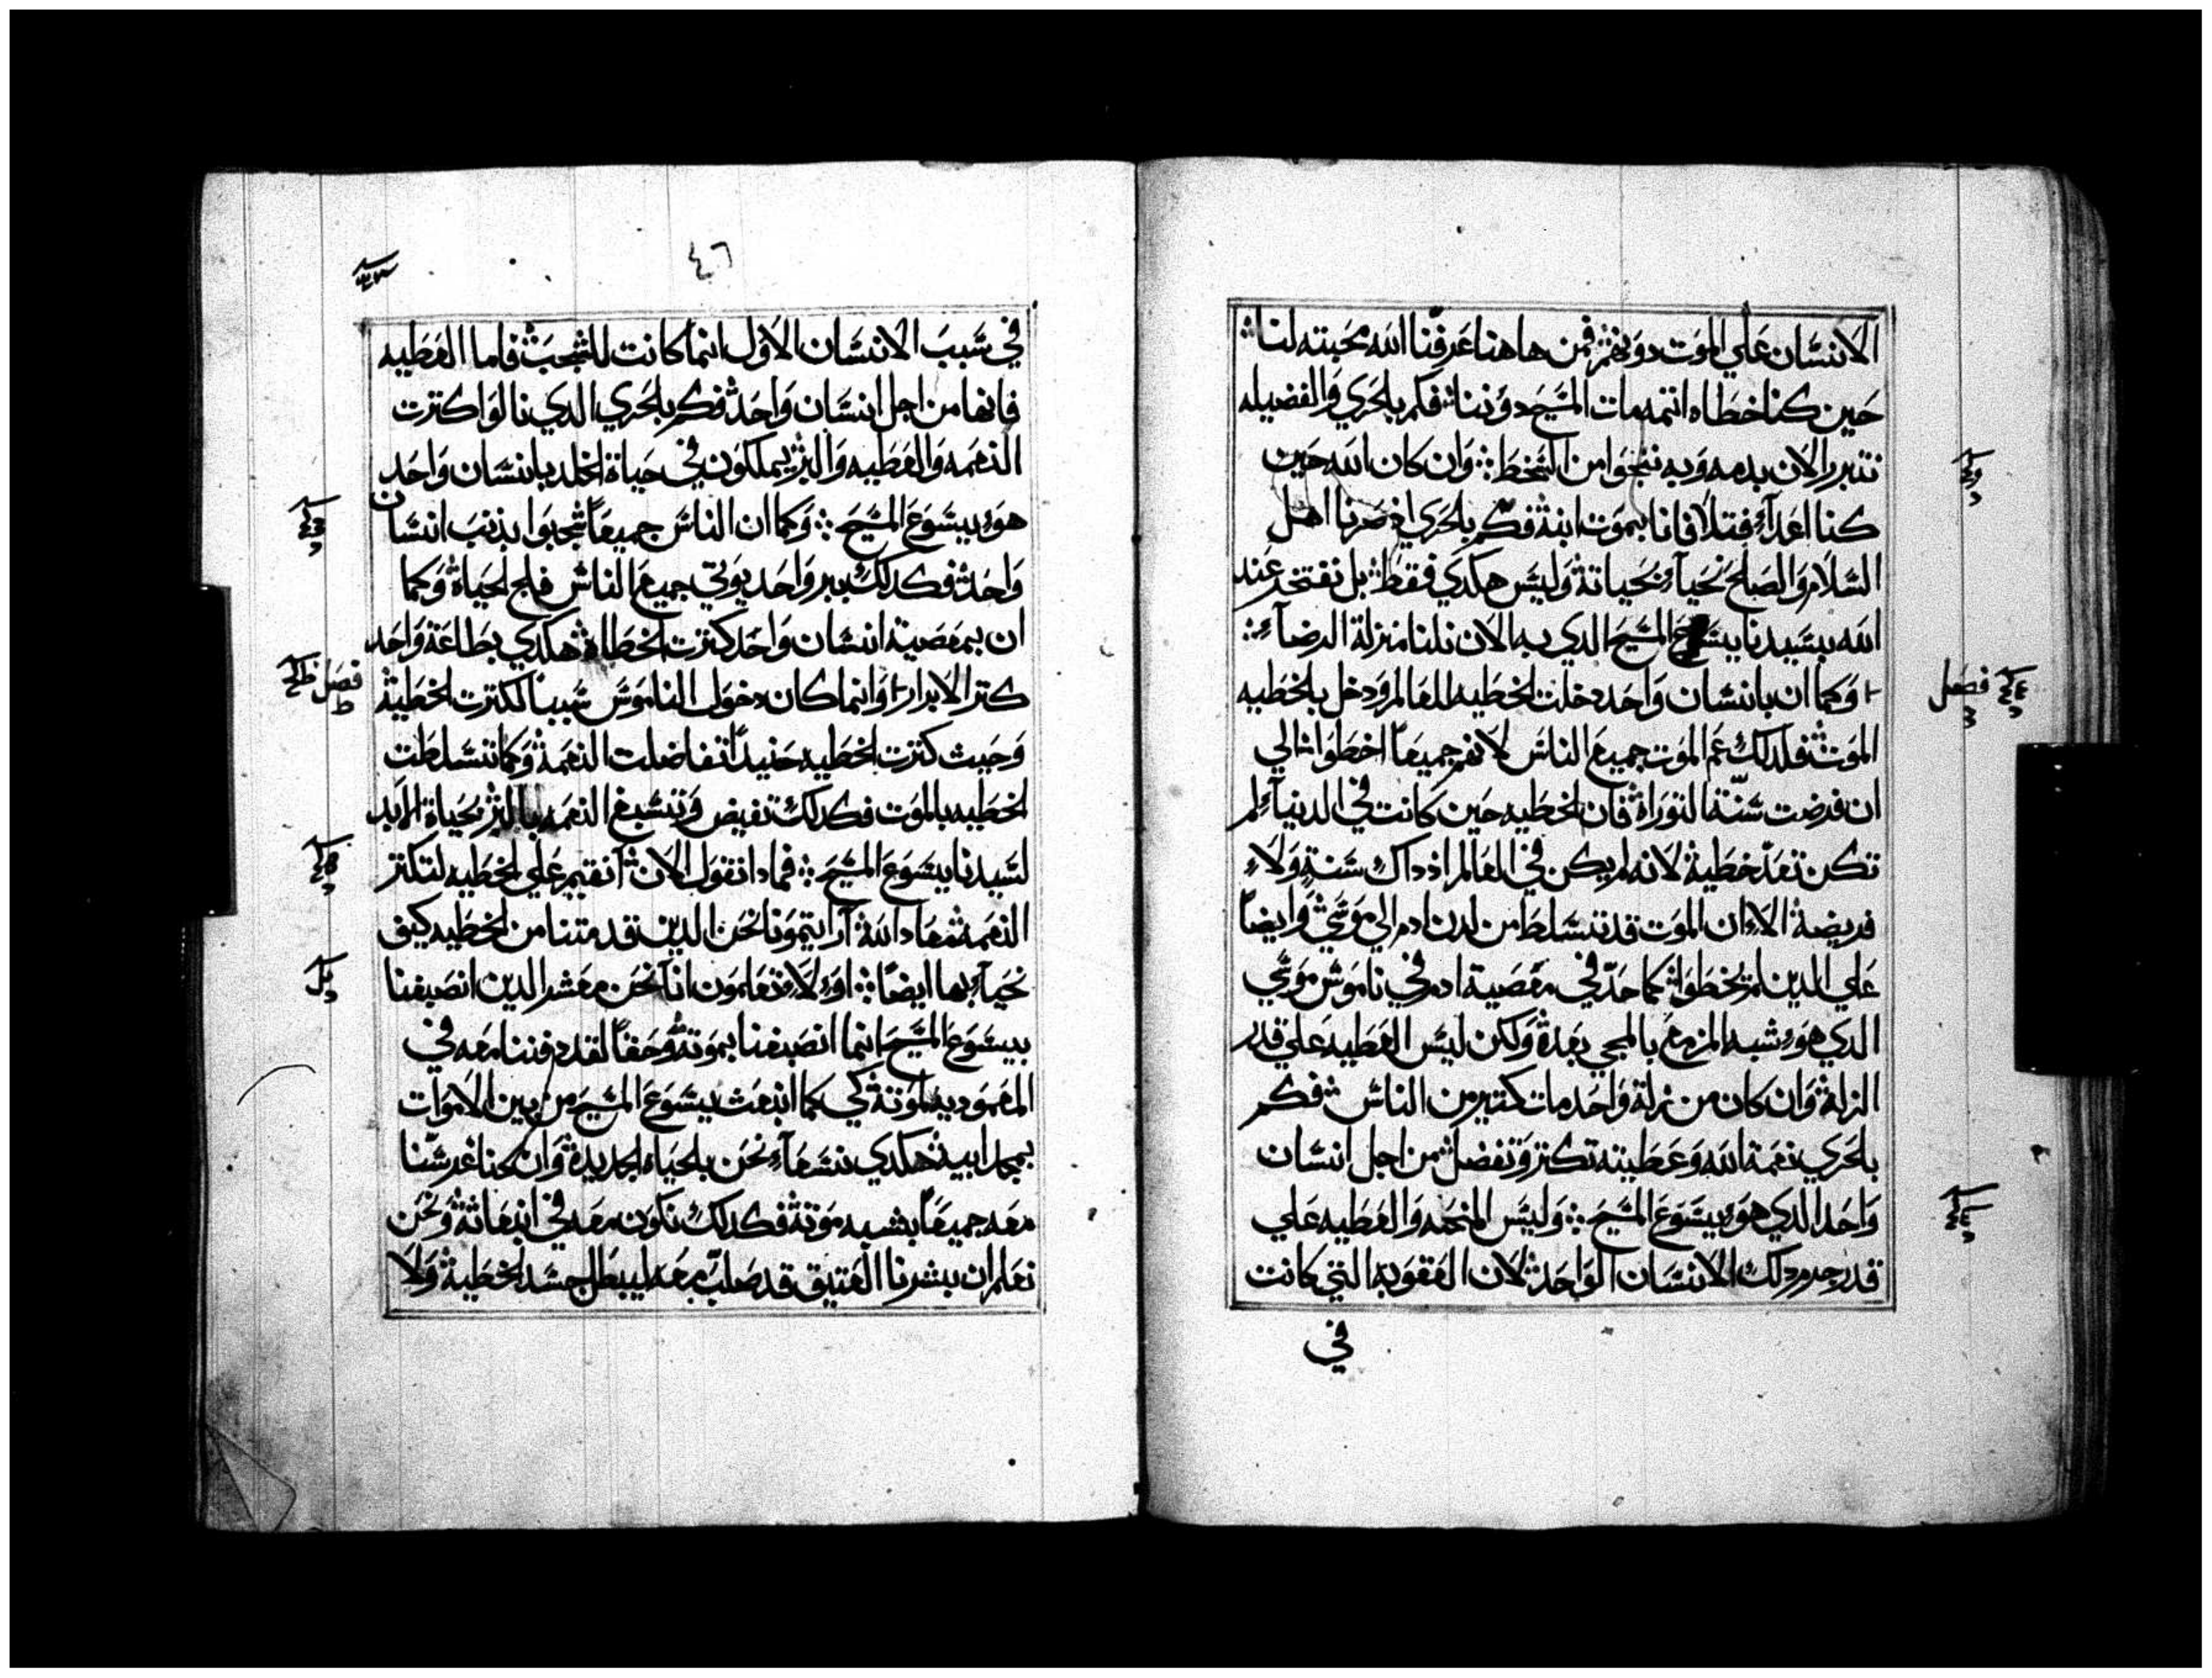 الانسان علي الموت دونهم فمن هاهنا عرفنا الله محبته لنا
حين كنا خطاه اتمه مات المسيح دوننا فكم بلحري والفضيله
نتبرر الان بدمه وبه ننجوا من السخط وان كان الله حين
كنا اعداء قبلا فانا بموت ابنه فكم بلحري اذ صرنا اهل
السلام والصلح نحياء بحياته وليس هكدي فقط بل نفتخر عند
الله بسيدنا يسوع المسيح الدي به الان نلنا منزلة الرضاء
وكما ان بانسان واحد دخلت الخطيه للعالم ودخل بالخطيه
فصل
الموت فلدلك عم الموت جميع الناس لانهم جميعا اخطوا الي
ان فرضت سنة التوراة فان الخطيه حين كانت في الدنياء لم
تكن تعد خطية لانه لم يكن في العالم اذ داك سنة ولاء
فريضة الاء ان الموت قد تسلط من لدن ادم الي موسي وايضا
علي الدين لم يخطوا كما حد في معصية ادم في ناموس موسي
الدي هوء شبه المزمع بالمجي بعده ولكن ليس العطيه علي قدر
الزلة وان كان من زلة واحد مات كتير من الناس فكم
بلحري نعمة الله وعطيته تكتر وتفضل من اجل انسان
واحد الدي هوء يسوع المسيح وليس المنحه والعطيه علي
قدر جرم دلك الانسان الواحد لان العقوبه التي كانت
في
٤٦
في سبب الانسان الاول انما كانت للشجب فاما العطيه
فانها من اجل انسان واحد فكم بلحري الدي نالوا كترت
النعمه والعطيه والبر يملكون في حياة الخلد بانسان واحد
هوء يسوع المسيح وكما ان الناس جميعا شجبوا بذنب انسان
واحد فكدلك ببر واحد يوتي جميع الناس فلج الحياة وكما
ان بمعصية انسان واحد كترت الخطاة هكدي بطاعة واحد
كتر الابرار وانما كان دخول الناموس سببا لكترت الخطية
فصل
وحيث كترت الخطيه حنيدا تفاضلت النعمة وكما تسلطت
الخطيه بالموت فكدلك تفيض وتسبغ النعمه بالبر بحياة الابد
لسيدنا يسوع المسيح فمادا نقول الان انقيم علي الخطيه لتكتر
النعمه معاد الله ارايتمونا نحن الدين قد متنا من الخطيه كيف
نحياء بها ايضا اوء لاء تعلمون انا نحن معشر الدين انصبغنا
بيسوع المسيح انما انصبغنا بموته وحقا لقد دفننا معه في
المعموديه لموته كي كما انبعث يسوع المسيح من بين الاموات
بمجد ابيه هكدي نسعاء نحن بلحياه الجديدة وان كنا غرسنا
معه جميعا بشبه موته فكدلك نكون معه في انبعاثه ونحن
نعلم ان بشرنا العتيق قد صلب معه ليبطل جسد الخطية ولا